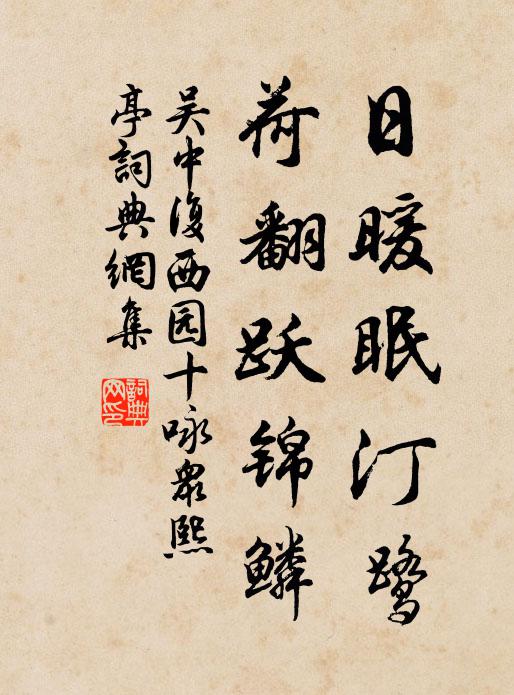 日暖眠汀鹭
荷翻跃锦鳞
吴中復西园十咏眾熙
亭詞典網集
詞典网印